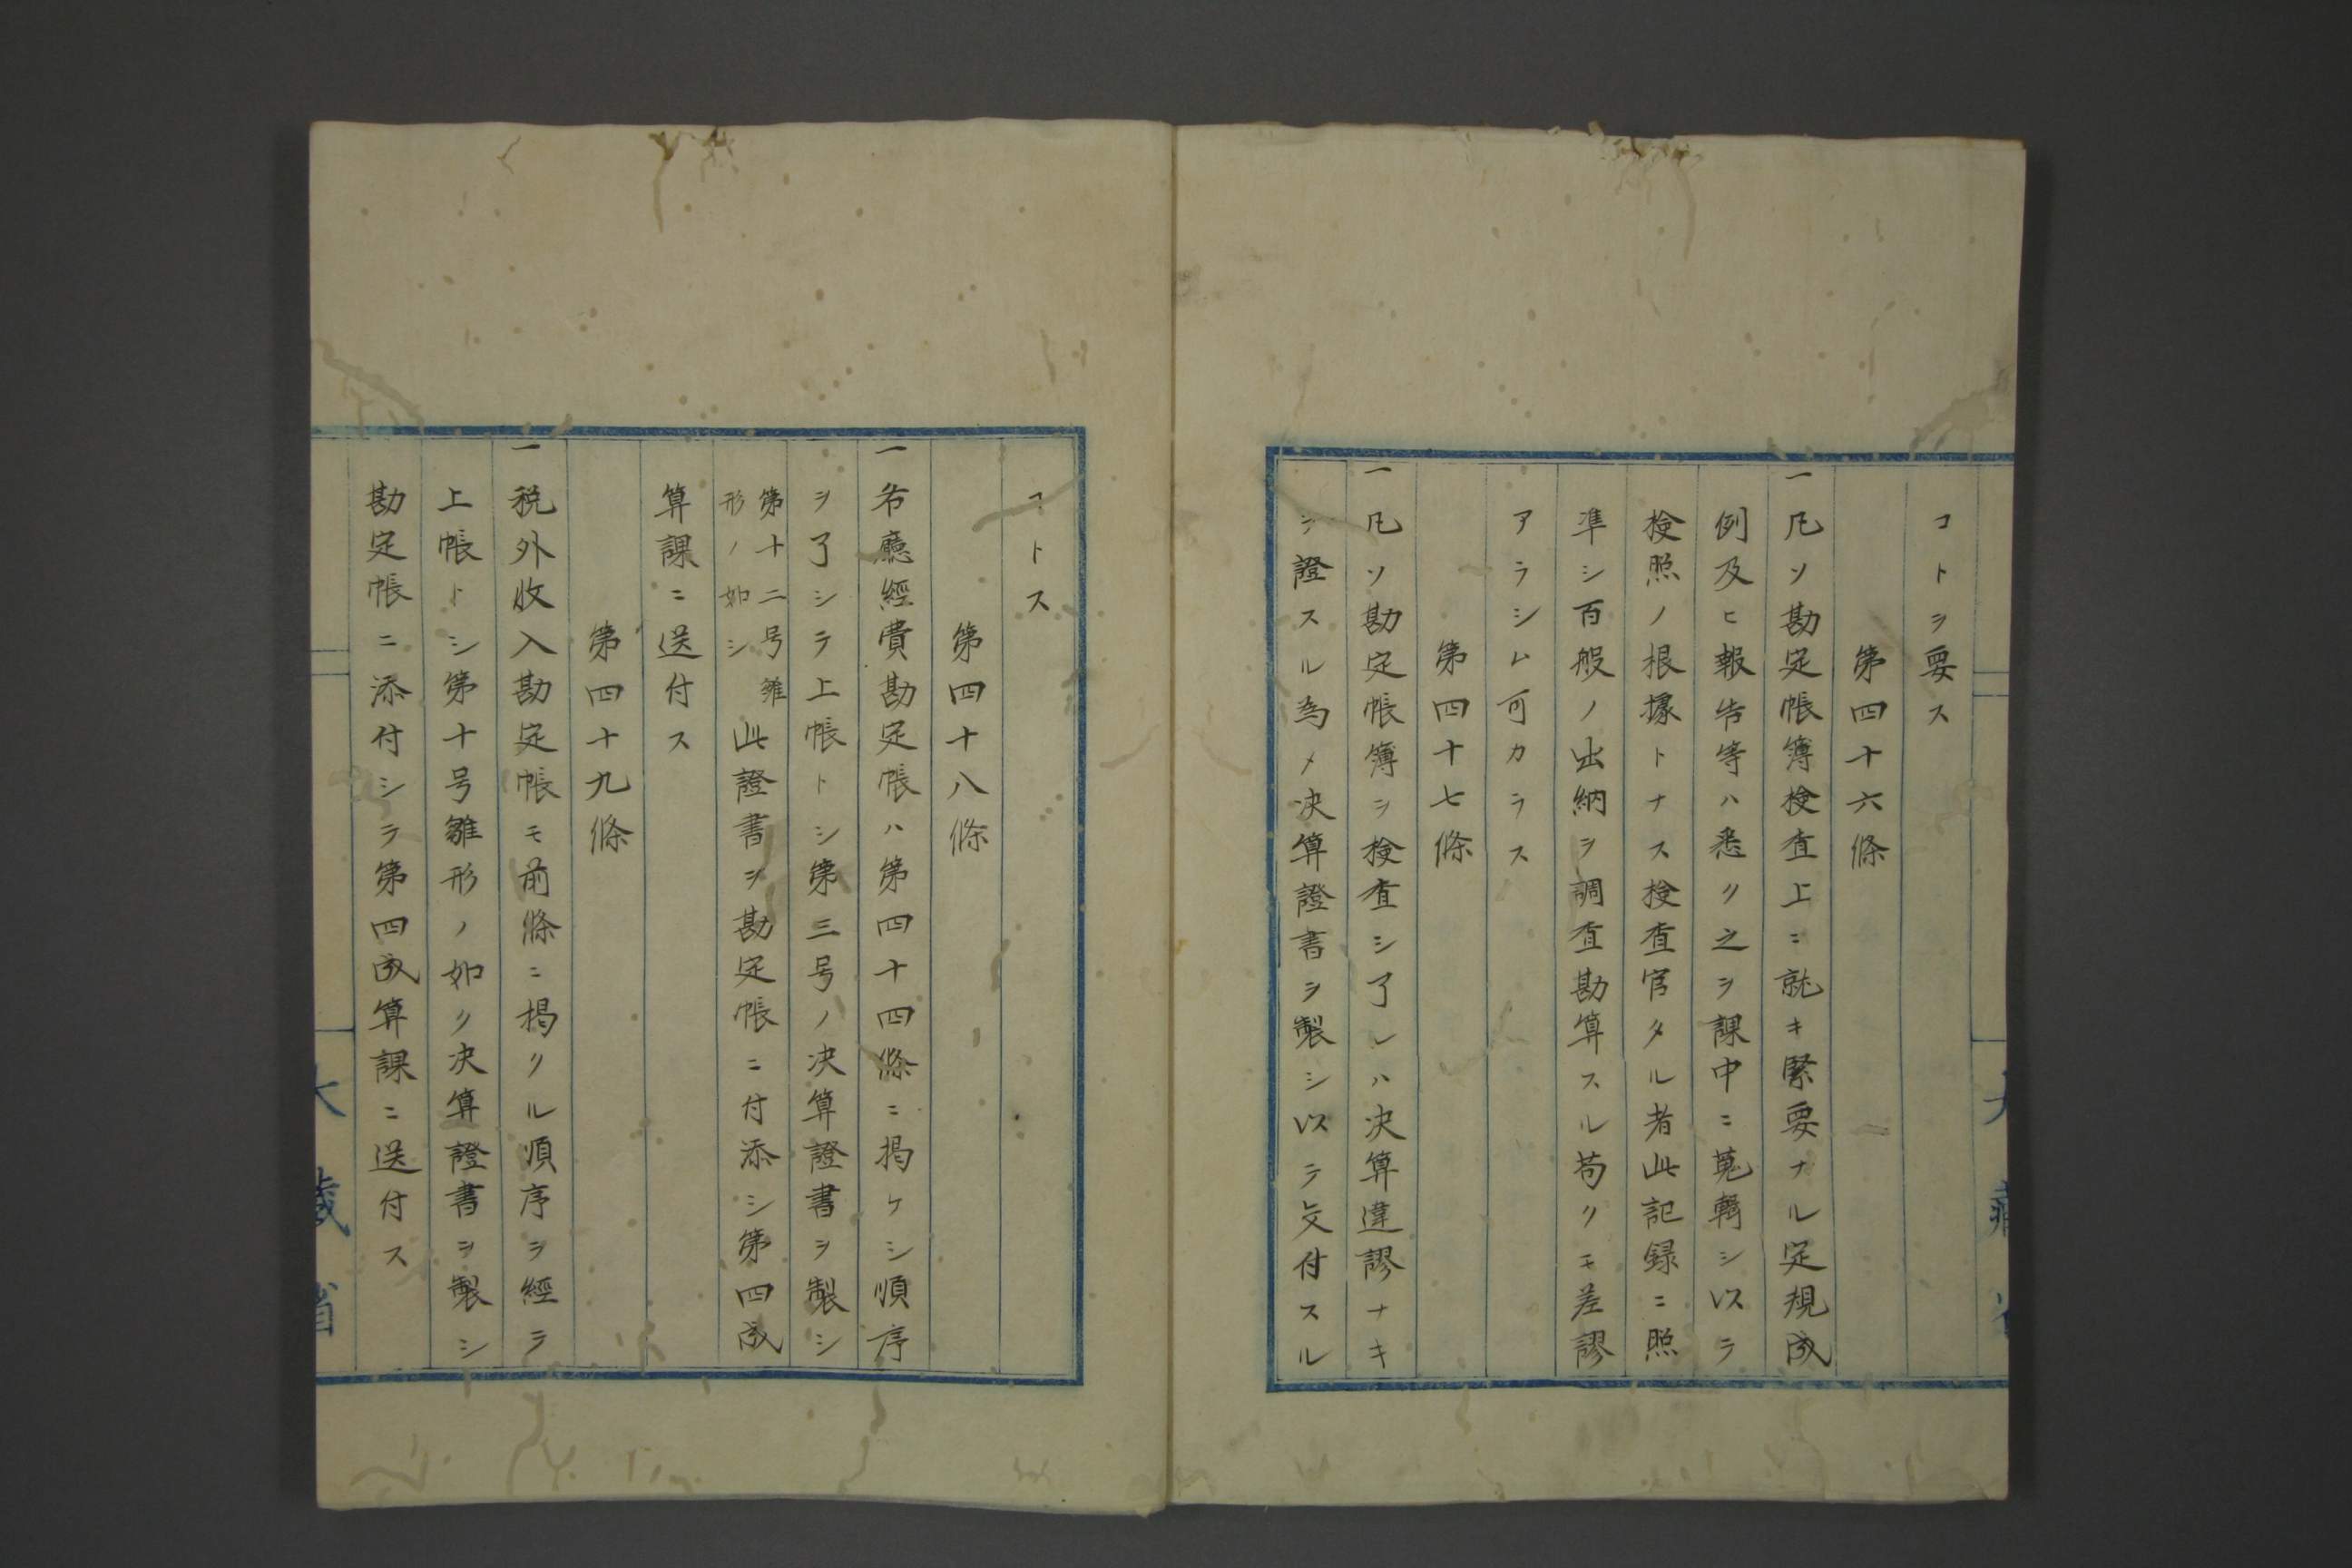 コトヲ要ス
第四十六條
一凡ソ勘定帳簿検査上ニ就キ緊要ナル定規成
例及ヒ報告等ハ悉ク之ヲ課中ニ蒐輯シ以テ
検照ノ根據トナス検査官タル者此記録ニ照
準シ百般ノ出納ヲ調査勘算スル苟クモ差謬
アラシム可カラス
第四十七條
一凡ソ勘定帳簿ヲ検査シ了レハ决算違謬ナキ
ヲ證スル為メ决算證書ヲ製シ以テ交付スル
コトス
第四十八條
一各廳經費勘定帳ハ第四十四條ニ掲ケシ順序
ヲ了シテ上帳トシ第三号ノ决算證書ヲ製シ
第十二号雛
形ノ如シ
此證書ヲ勘定帳ニ付添シ第四成
算課ニ送付ス
第四十九條
一税外收入勘定帳モ前條ニ掲クル順序ヲ經テ
上帳トシ第十号雛形ノ如ク决算證書ヲ製シ
勘定帳ニ添付シテ第四成算課ニ送付ス
大藏省